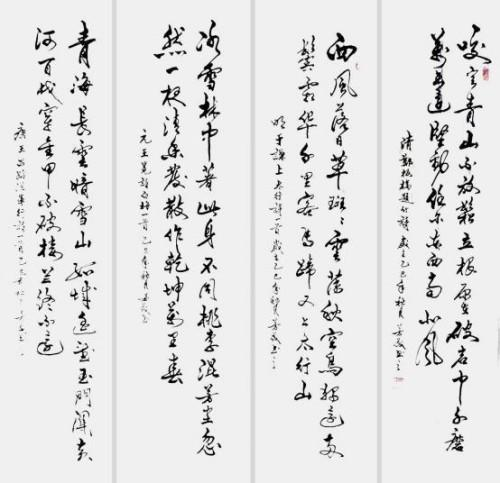 咬定青山不放鬆立根原在破岩中千磨
萬擊還堅勁任尔東西南北風
清鄭板橋題竹詩歲在乙巳年秋月
西風落日草斑々雲薄秋空鳥獨還兩
鬢霜華千里客馬蹄又上太行山
明于謙上太行詩一首歲在乙巳年秋月
冰雪林中著此身不同桃李混芳塵忽
然一夜清香發散作乾坤萬里春
元王冕詩白梅一首乙巳年秋月
青海長雲暗雪山孤城遙望玉門關黃
沙百戰穿金甲不破樓蘭終不還
唐王昌齡從軍行詩一首乙巳年秋月